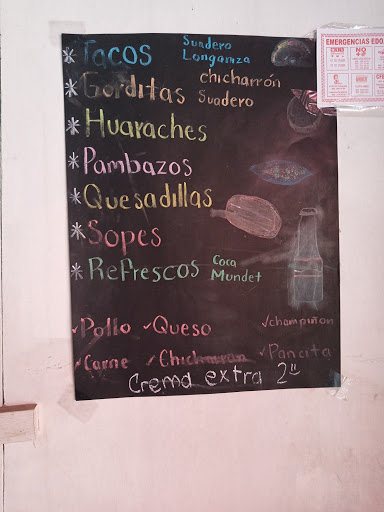 EMERGENCIAS EDO.
* Tacos Suadero
Longaniza
* Gorditas chicharrón
Suadero
* Huaraches
* Pambazos
* Quesadillas
* Sopes
* Refrescos Coca
Mundet
✓Pollo ✓Queso ✓champiñon
✓Carne ✓Chicharron ✓Pancita
Crema extra 2"